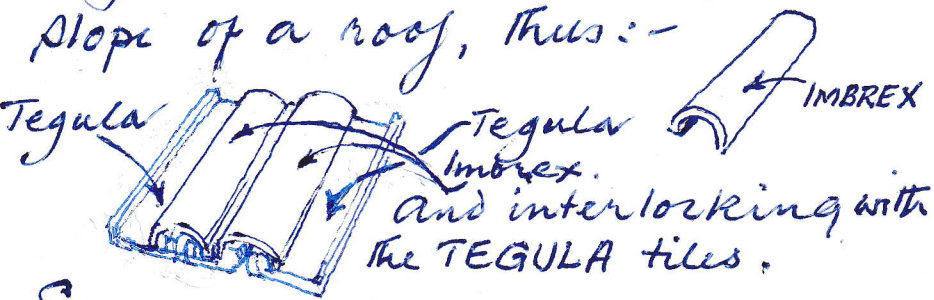 slope of a roof, thus:-
IMBREX
Tegula
Tegula
Imbrex.
and interlocking with
the TEGULA tiles.